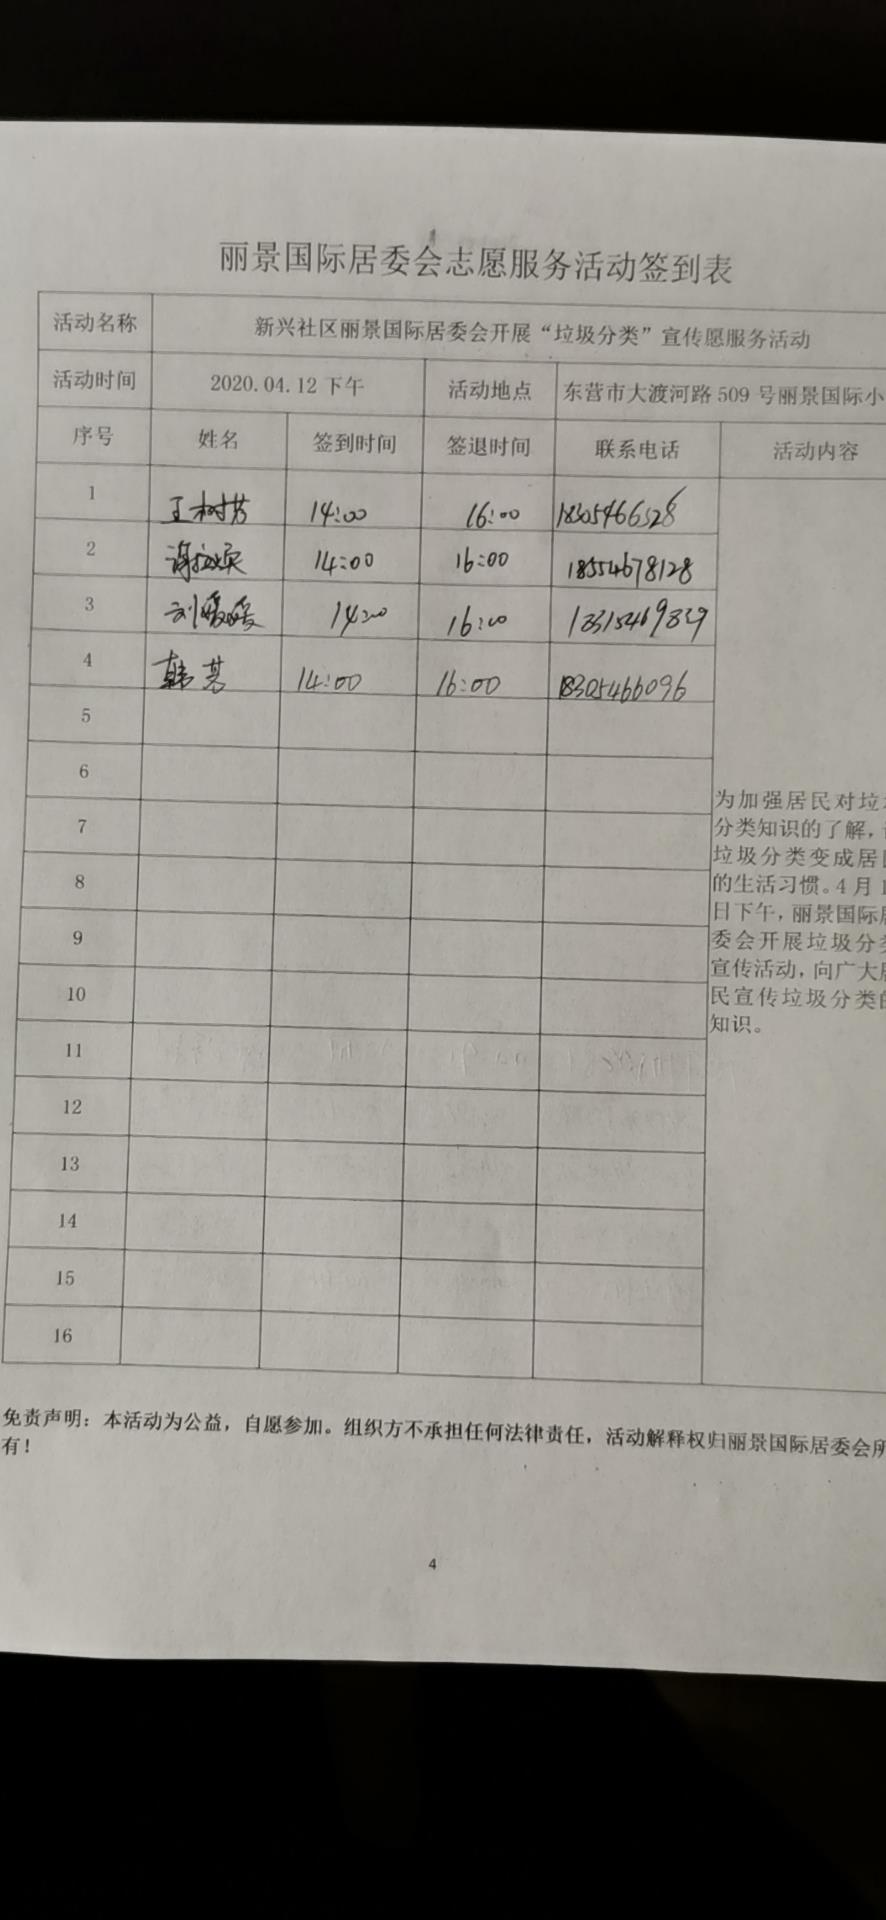 丽景国际居委会志愿服务活动签到表
活动名称 新兴社区丽景国际居委会开展“垃圾分类”宣传愿服务活动
活动时间 2020.04.12下午 活动地点 东营市大渡河路509号丽景国际小
序号 姓名 签到时间 签退时间 联系电话 活动内容
1 王树芳 14:00 16:00 18305466528
2 谢 14:00 16:00 18554678128
3 刘媛媛 14:00 16:00 13315469339
4 韩 14:00 16:00 18305466096
5
6
7
8
9
10
11
12
13
14
15
16
为加强居民对垃
分类知识的了解，
垃圾分类变成居
的生活习惯。4月1
日下午，丽景国际
委会开展垃圾分
宣传活动，向广大
民宣传垃圾分类
知识。
免责声明：本活动为公益，自愿参加。组织方不承担任何法律责任，活动解释权归丽景国际居委会所
有！
4